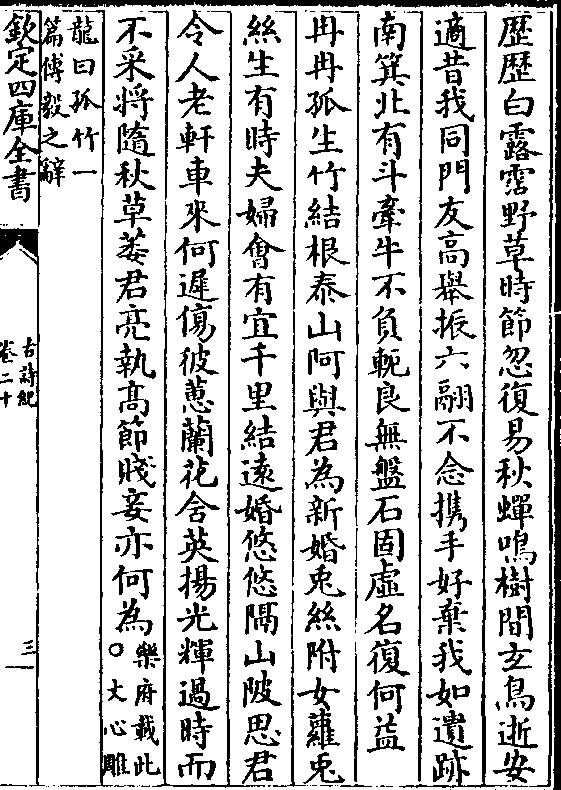 歷歷白露霑野草時節忽復易秋蟬鳴樹間玄鳥逝安
適昔我同門友高舉振六翮不念攜手好棄我如遺跡
南箕北有斗牽牛不負軛良無盤石固虛名復何益
冉冉孤生竹結根泰山阿與君為新婚兎絲附女蘿兎
絲生有時夫婦會有宜千里結遠婚悠悠隔山陂思君
令人老軒車來何遲傷彼蕙蘭花含英揚光輝過時而
不采將隨秋草萎君亮執髙節賤妾亦何為樂府載此○文心雕
龍曰孤竹一篇傅毅之辭
欽定四庫全書
古詩紀
卷二十
三